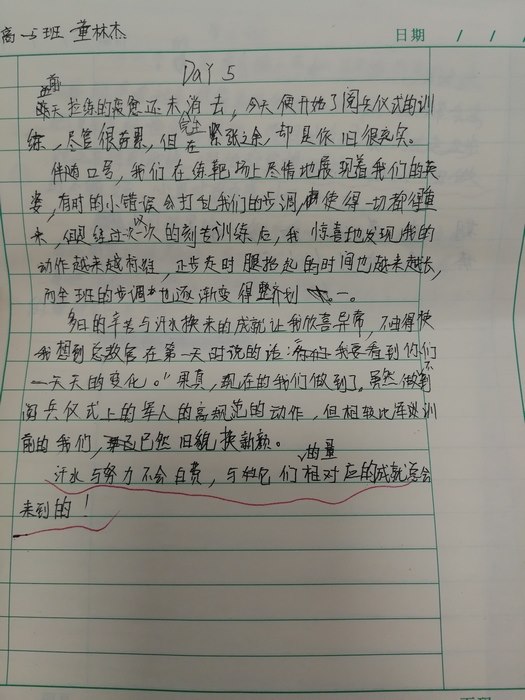 高一5班 董林杰
日期 / / /
Day 5
前
昨天拉练的疲惫还未消去，今天便开始了阅兵仪式的训
练，尽管很劳累，但在紧张之余，却是依旧很充实。
伴随口号，我们在练靶场上尽情地展现着我们的英
姿，有时的小错误会打乱我们的步调，使得一切都得重
来，但经过一次次的刻苦训练后，我惊喜地发现我的
动作越来越标准，正步走时腿抬起的时间也越来越长，
而全班的步调也逐渐变得整齐划一。
多日的辛苦与汗水换来的成就让我欣喜异常，不由得使
我想到总教官在第一天时说的话：我要看到你们
一天天的变化。”果真，现在的我们做到了，虽然做不到
阅兵仪式上的军人的高规范的动作，但相较比军训
前的我们，已然旧貌换新颜。
汗水与努力不会白费，与它们的量相对应的成就总会
来到的！